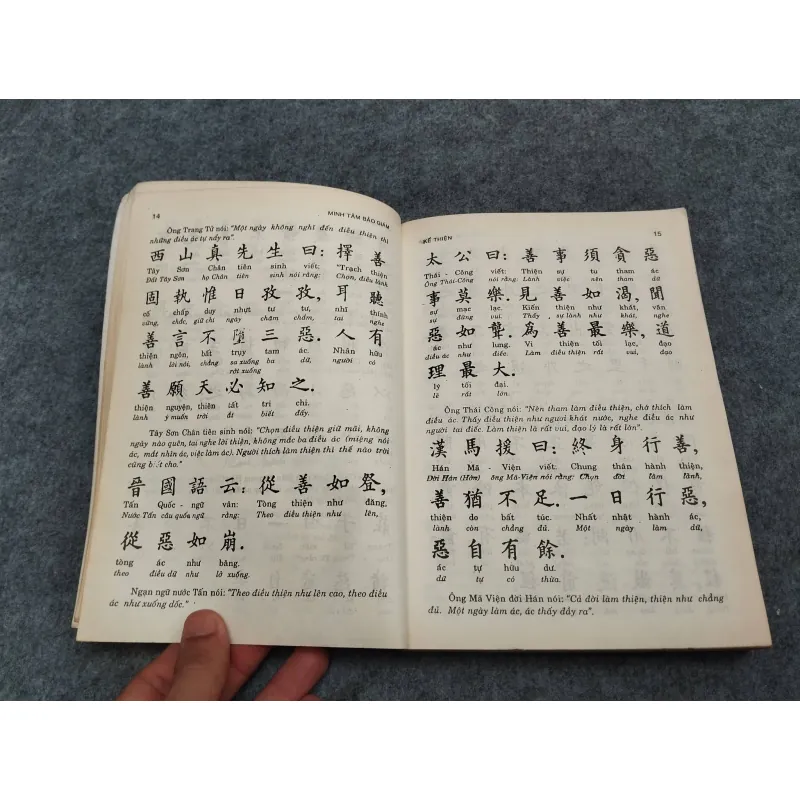 14 MINH TÂM BẢO GIÁM
Ông Trang Tử nói: "Một ngày không nghĩ đến điều thiện thì
những điều ác tự nẩy ra".
西山真先生曰：擇善
Tây Sơn Chân tiên sinh viết: "Trạch thiện
Đất Tây Sơn họ Chân tiên sinh nói rằng: Chọn, điều lành
固執惟日孜孜，耳聽
cố chấp duy nhựt tư tư, nhĩ thính
vững, chắc, giữ chỉ ngày chăm chăm, tai nghe
善言不墮三惡．人有
thiện ngôn, bất trụy tam ác. Nhân hữu
lành lời nói, chẳng sa xuống ba dữ, người có
rớt xuống
善願天必知之．
thiện nguyện, thiên tất tri chi.
lành ý muốn trời ắt biết đấy.
Tây Sơn Chân tiên sinh nói: "Chọn điều thiện giữ mãi, không
ngày nào quên, tai nghe lời thiện, không mắc ba điều ác (miệng nói
ác, mắt nhìn ác, việc làm ác). Người thích làm thiện thì thế nào trời
cũng biết cho."
晉國語云：從善如登，
Tấn Quốc - ngữ vân: Tòng thiện như đăng,
Nước Tấn câu quốc ngữ rằng: Theo điều thiện như lên,
從惡如崩．
tòng ác như băng.
theo điều dữ như lở xuống.
Ngạn ngữ nước Tấn nói: "Theo điều thiện như lên cao, theo điều
ác như xuống dốc."
KẾ THIỆN 15
太公曰：善事須貪惡
Thái - Công viết: Thiện sự tu tham ác
Ông Thái-Công nói rằng: Lành việc nên tham dữ
事莫樂．見善如渴，聞
sự mạc lạc. Kiến thiện như khát, văn
sự đừng vui. Thấy sự lành như khát, nghe
惡如聾．為善最樂，道
ác như lung. Vi thiện tối lạc, đạo
điều ác như điếc. Làm điều thiện rất vui, đạo
理最大．
lý tối đại.
lẽ rất lớn.
Ông Thái Công nói: "Nên tham làm điều thiện, chớ thích làm
điều ác. Thấy điều thiện như người khát nước, nghe điều ác như
người tai điếc. Làm thiện là rất vui, đạo lý là rất lớn".
漢馬援曰：終身行善，
Hán Mã - Viện viết: Chung thân hành thiện,
Đời Hán (Hớn) ông Mã-Viện nói rằng: Chọn đời làm lành,
善猶不足．一日行惡，
thiện do bất túc. Nhất nhật hành ác,
lành còn chẳng đủ. Một ngày làm dữ,
惡自有餘．
ác tự hữu dư.
dữ tự có thừa.
Ông Mã Viện đời Hán nói: "Cả đời làm thiện, thiện như chẳng
đủ. Một ngày làm ác, ác thấy đầy ra".